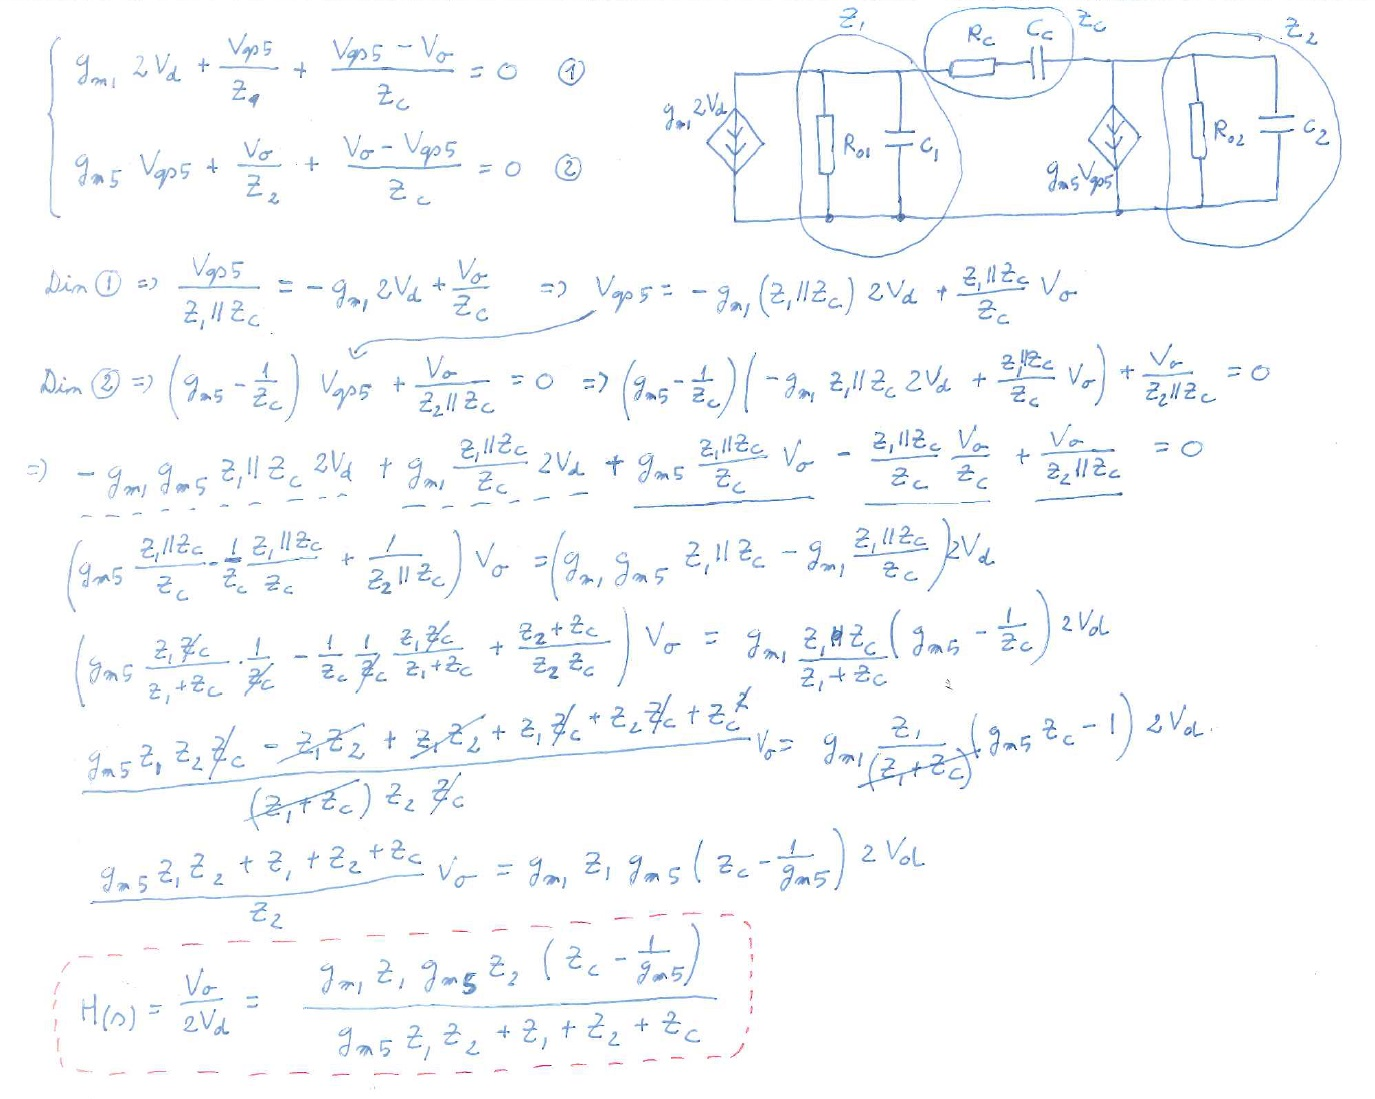 g_m1 2V_d + V_gp5/Z_1 + (V_gp5 − V_o)/Z_c = 0 ①
g_m5 V_gp5 + V_o/Z_2 + (V_o − V_gp5)/Z_c = 0 ②
Z_1
R_c C_c Z_c
Z_2
g_m1 2V_d
R_o1 C_1
g_m5 V_gp5
R_o2 C_2
Din ① => V_gp5/(Z_1||Z_c) = −g_m1 2V_d + V_o/Z_c => V_gp5 = −g_m1 (Z_1||Z_c) 2V_d + (Z_1||Z_c)/Z_c V_o
Din ② => (g_m5 − 1/Z_c) V_gp5 + V_o/(Z_2||Z_c) = 0 => (g_m5 − 1/Z_c)(−g_m1 Z_1||Z_c 2V_d + (Z_1||Z_c)/Z_c V_o) + V_o/(Z_2||Z_c) = 0
=> −g_m1 g_m5 Z_1||Z_c 2V_d + g_m1 (Z_1||Z_c)/Z_c 2V_d + g_m5 (Z_1||Z_c)/Z_c V_o − (Z_1||Z_c)/Z_c V_o/Z_c + V_o/(Z_2||Z_c) = 0
(g_m5 (Z_1||Z_c)/Z_c − 1/Z_c (Z_1||Z_c)/Z_c + 1/(Z_2||Z_c)) V_o = (g_m1 g_m5 Z_1||Z_c − g_m1 (Z_1||Z_c)/Z_c) 2V_d
(g_m5 (Z_1 Z_c)/(Z_1+Z_c) · 1/Z_c − 1/Z_c 1/Z_c (Z_1 Z_c)/(Z_1+Z_c) + (Z_2+Z_c)/(Z_2 Z_c)) V_o = g_m1 (Z_1 Z_c)/(Z_1+Z_c) (g_m5 − 1/Z_c) 2V_d
(g_m5 Z_1 Z_2 Z_c − Z_1 Z_2 + Z_1 Z_2 + Z_1 Z_c + Z_2 Z_c + Z_c^2)/((Z_1+Z_c) Z_2 Z_c) V_o = g_m1 Z_1/(Z_1+Z_c) (g_m5 Z_c − 1) 2V_d.
(g_m5 Z_1 Z_2 + Z_1 + Z_2 + Z_c)/Z_2 V_o = g_m1 Z_1 g_m5 (Z_c − 1/g_m5) 2V_d
H(s) = V_o/2V_d = (g_m1 Z_1 g_m5 Z_2 (Z_c − 1/g_m5))/(g_m5 Z_1 Z_2 + Z_1 + Z_2 + Z_c)